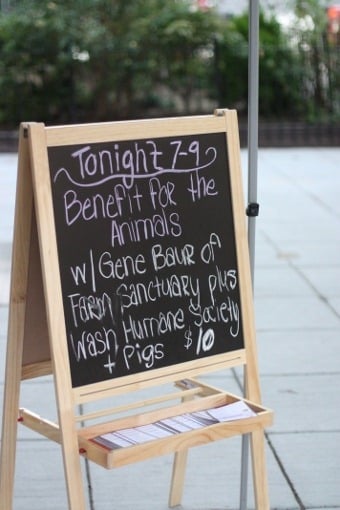 Tonight 7-9
Benefit for the
Animals
w/ Gene Baur of
Farm Sanctuary plus
Wash Humane Society
+ Pigs $10